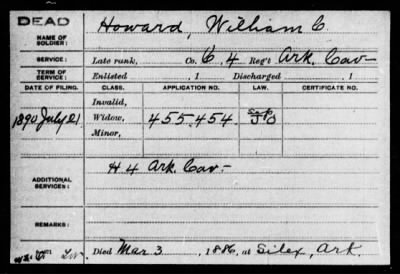 DEAD
NAME OF SOLDIER: Howard, William C.
SERVICE: Late rank, Co. C, 4 Reg't Ark. Cav-
TERM OF SERVICE: Enlisted , 1 Discharged , 1
DATE OF FILING. CLASS. APPLICATION NO. LAW. CERTIFICATE NO.
Invalid,
1890 July 21 Widow, 455.454
Minor,
ADDITIONAL SERVICES: H 4 Ark. Cav-
REMARKS:
Died Mar 3, 1886, at Silex, Ark.